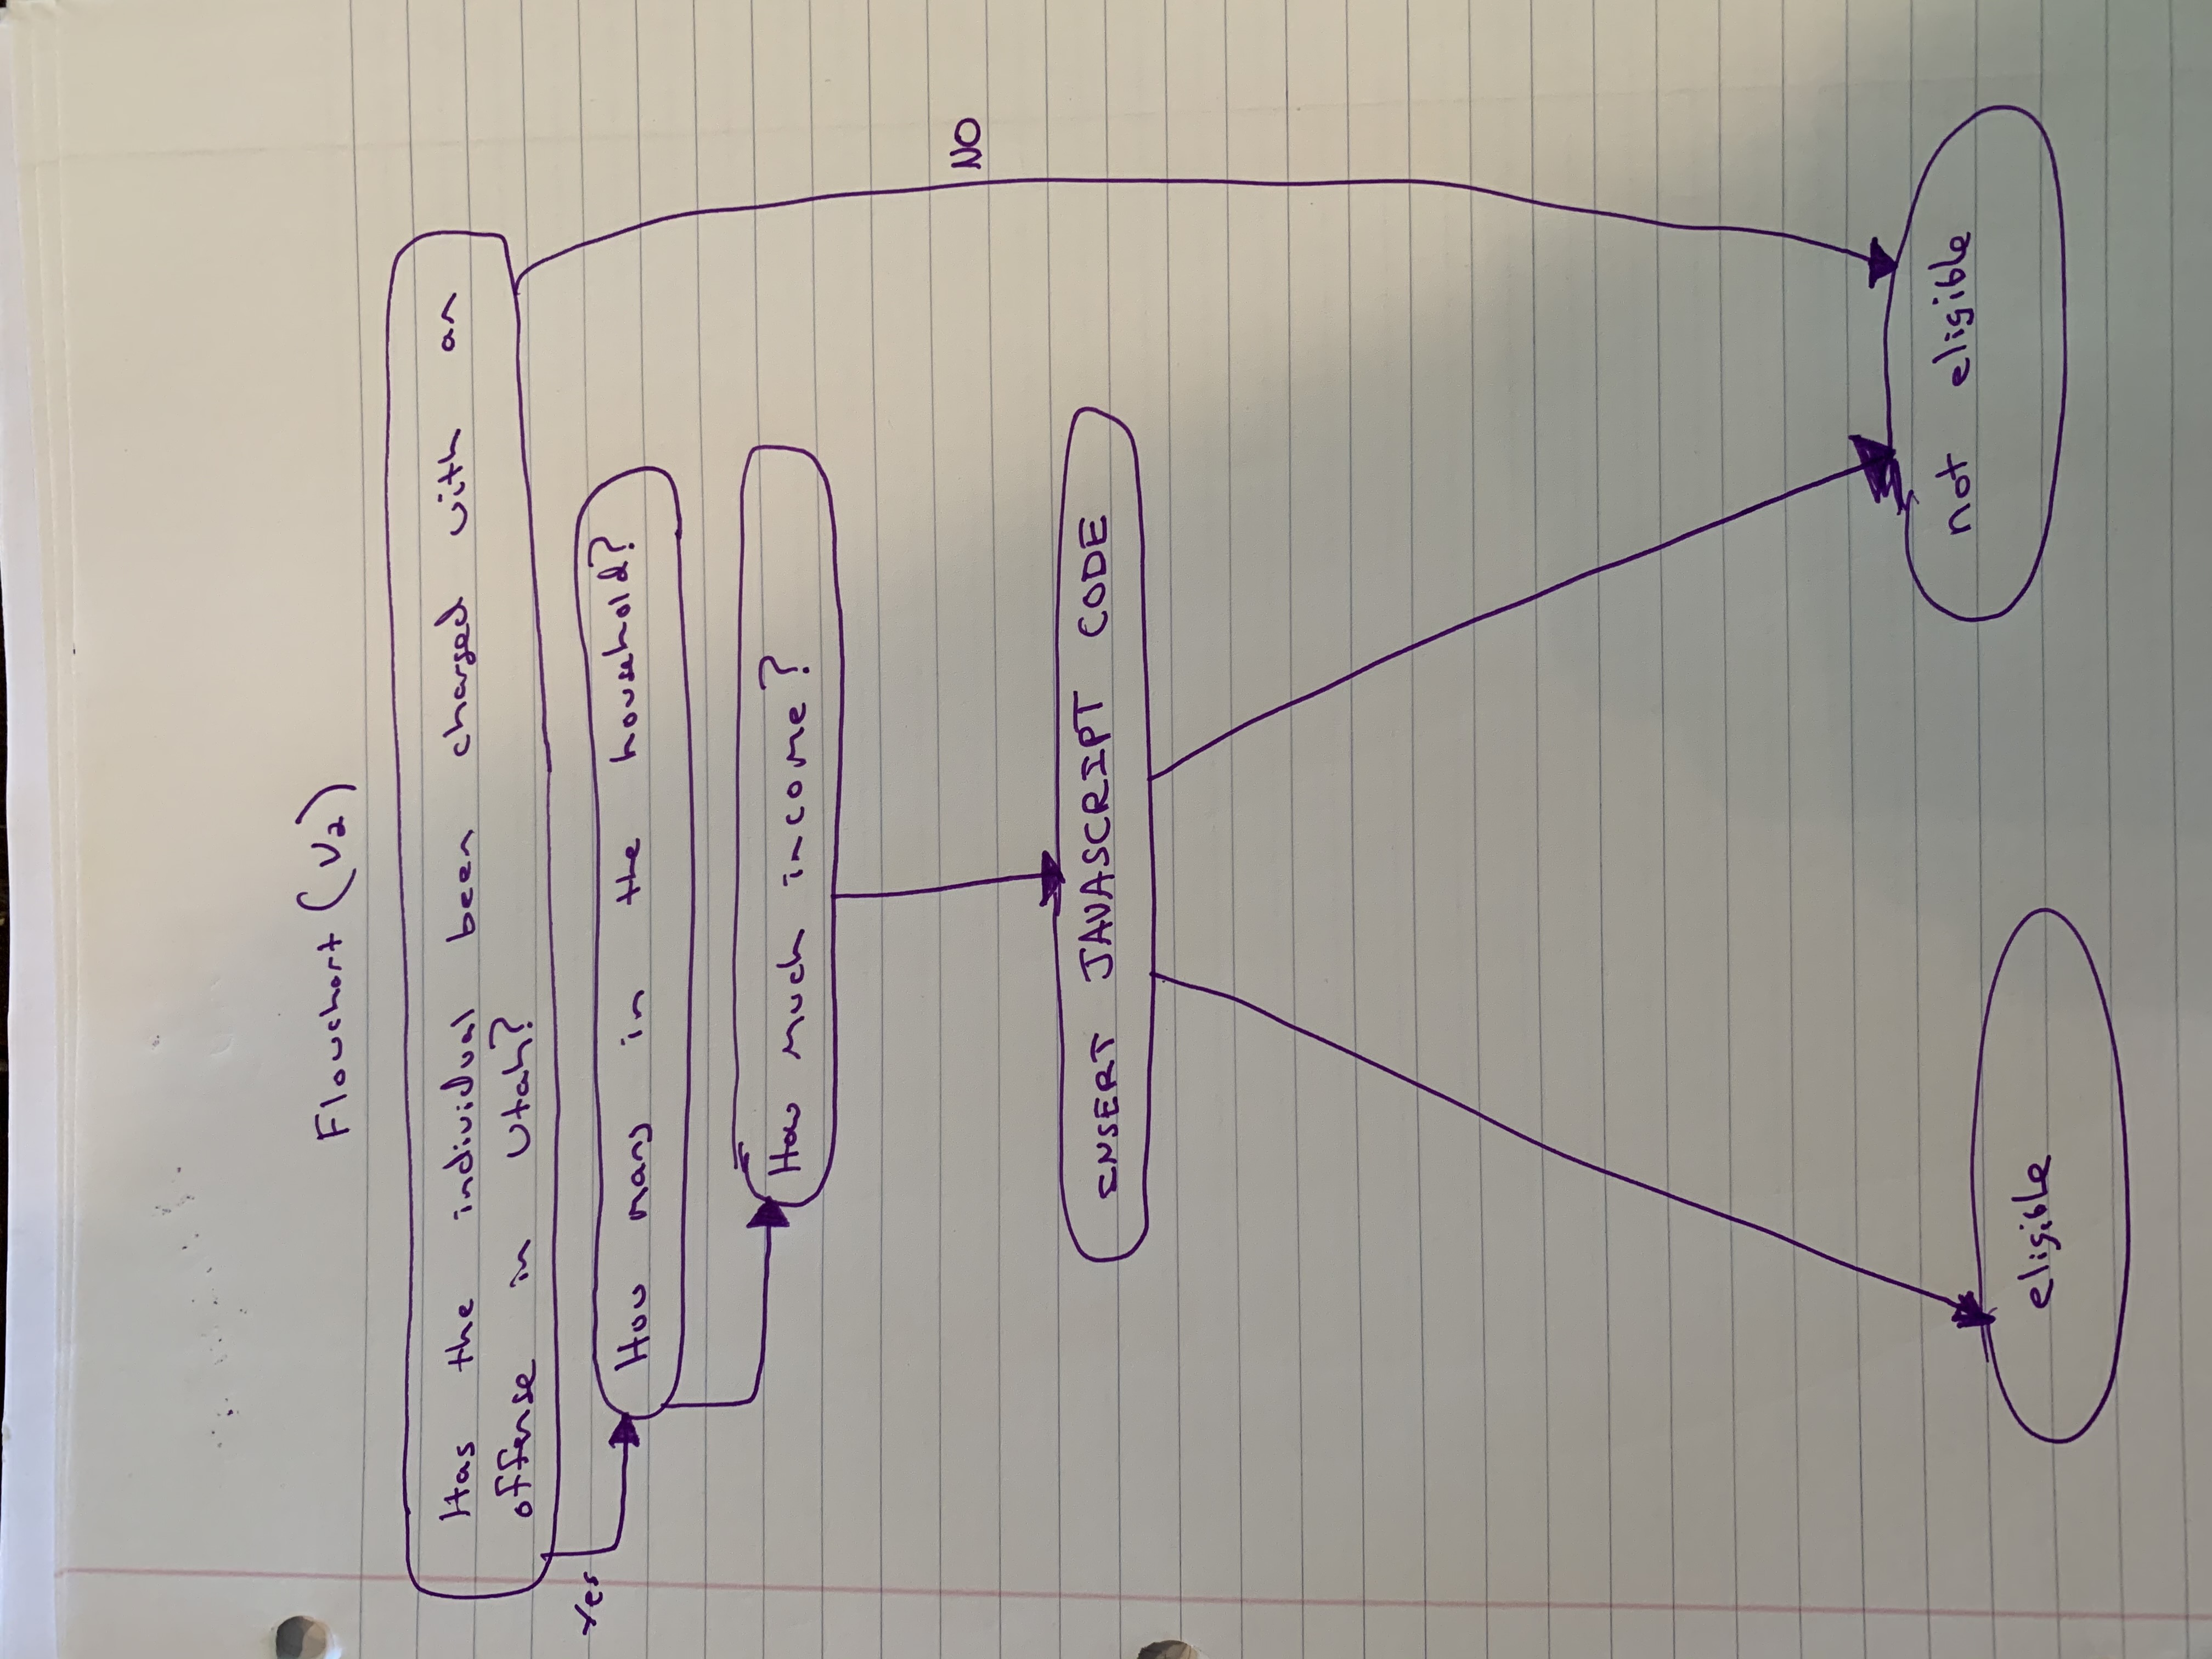 Flowchart (V2)
Has the individual been charged with an
offense in Utah?
Yes
How many in the household?
How much income?
NO
INSERT JAVASCRIPT CODE
not eligible
eligible